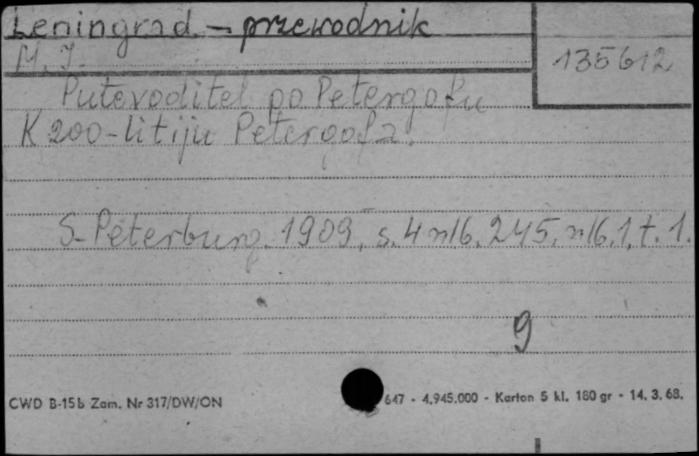 Leningrad - przewodnik
M. J.
135612
Putevoditel po Petergofu
K 200-litiju Petergofa.
S-Peterburg. 1909, s. 4 nlb. 245, nlb. 1, t. 1.
9
CWD B-15b Zam. Nr 317/DW/ON
647 - 4,945.000 - Karton 5 kl. 180 gr - 14. 3. 68.